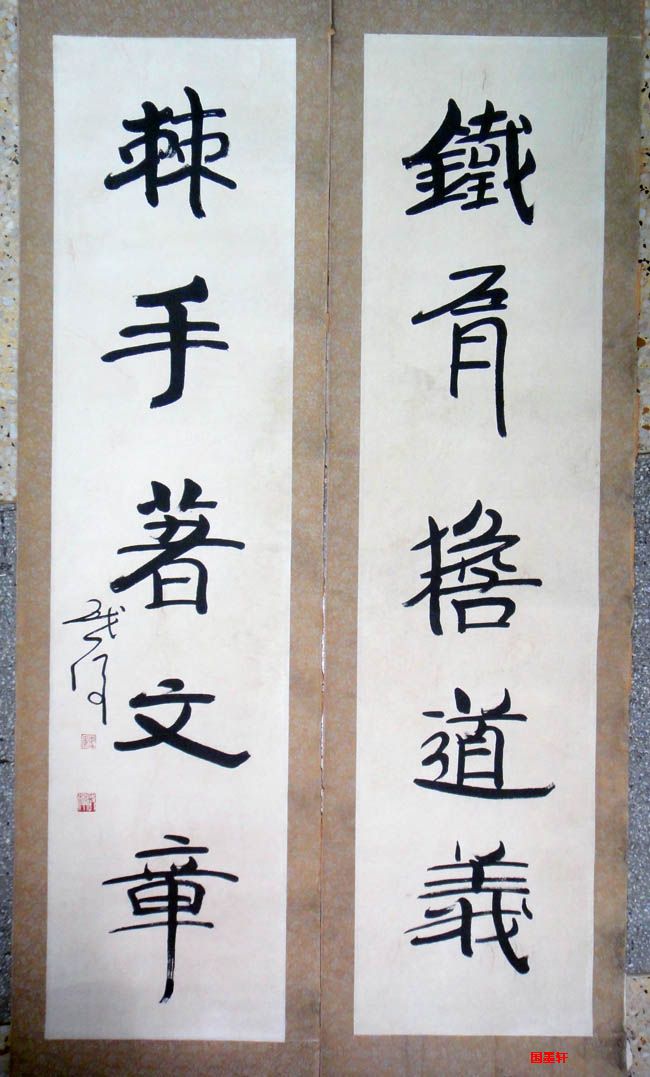 鐵肩擔道義
棘手著文章
国墨轩